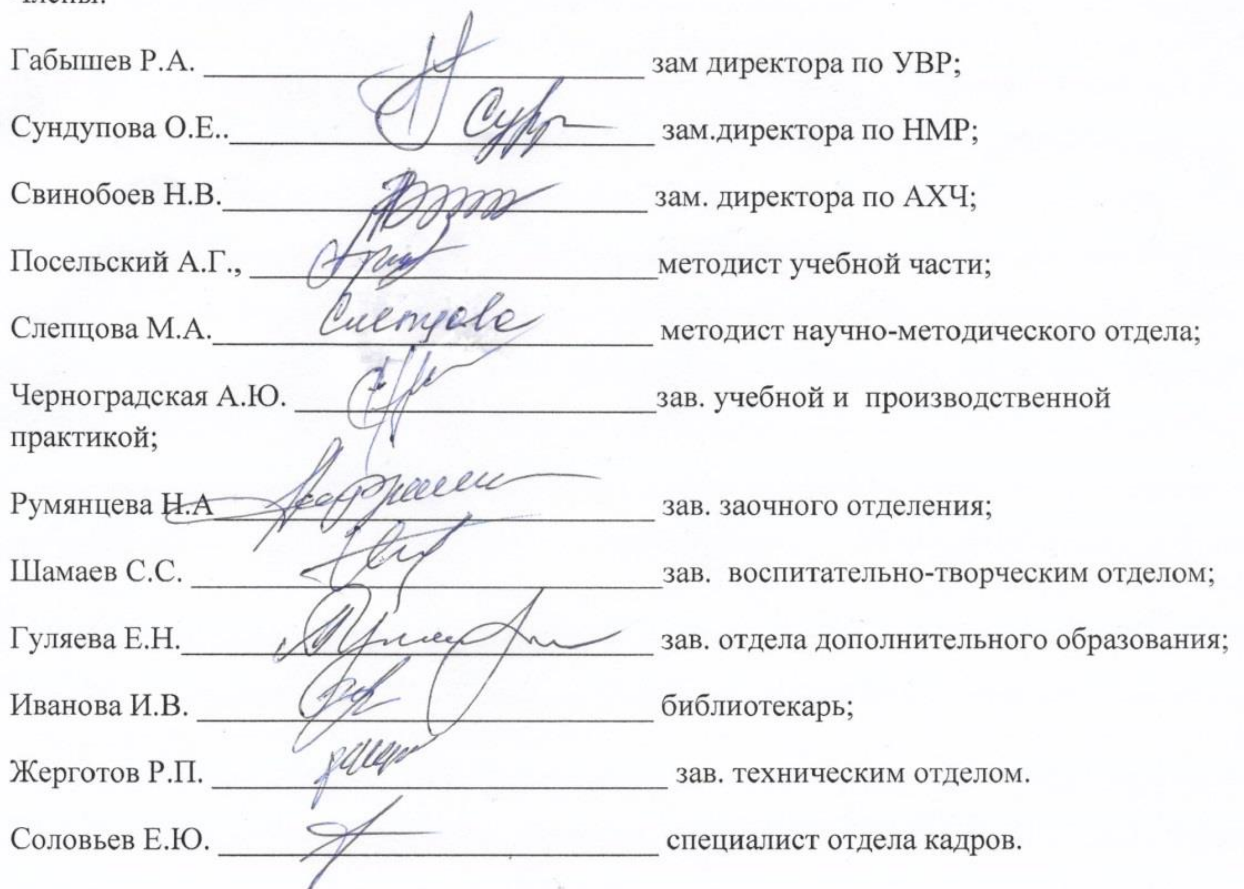 Члены:
Габышев Р.А. зам директора по УВР;
Сундупова О.Е.. зам.директора по НМР;
Свинобоев Н.В. зам. директора по АХЧ;
Посельский А.Г., методист учебной части;
Слепцова М.А. Слепцова методист научно-методического отдела;
Черноградская А.Ю. зав. учебной и производственной
практикой;
Румянцева Н.А зав. заочного отделения;
Шамаев С.С. зав. воспитательно-творческим отделом;
Гуляева Е.Н. зав. отдела дополнительного образования;
Иванова И.В. библиотекарь;
Жерготов Р.П. зав. техническим отделом.
Соловьев Е.Ю. специалист отдела кадров.